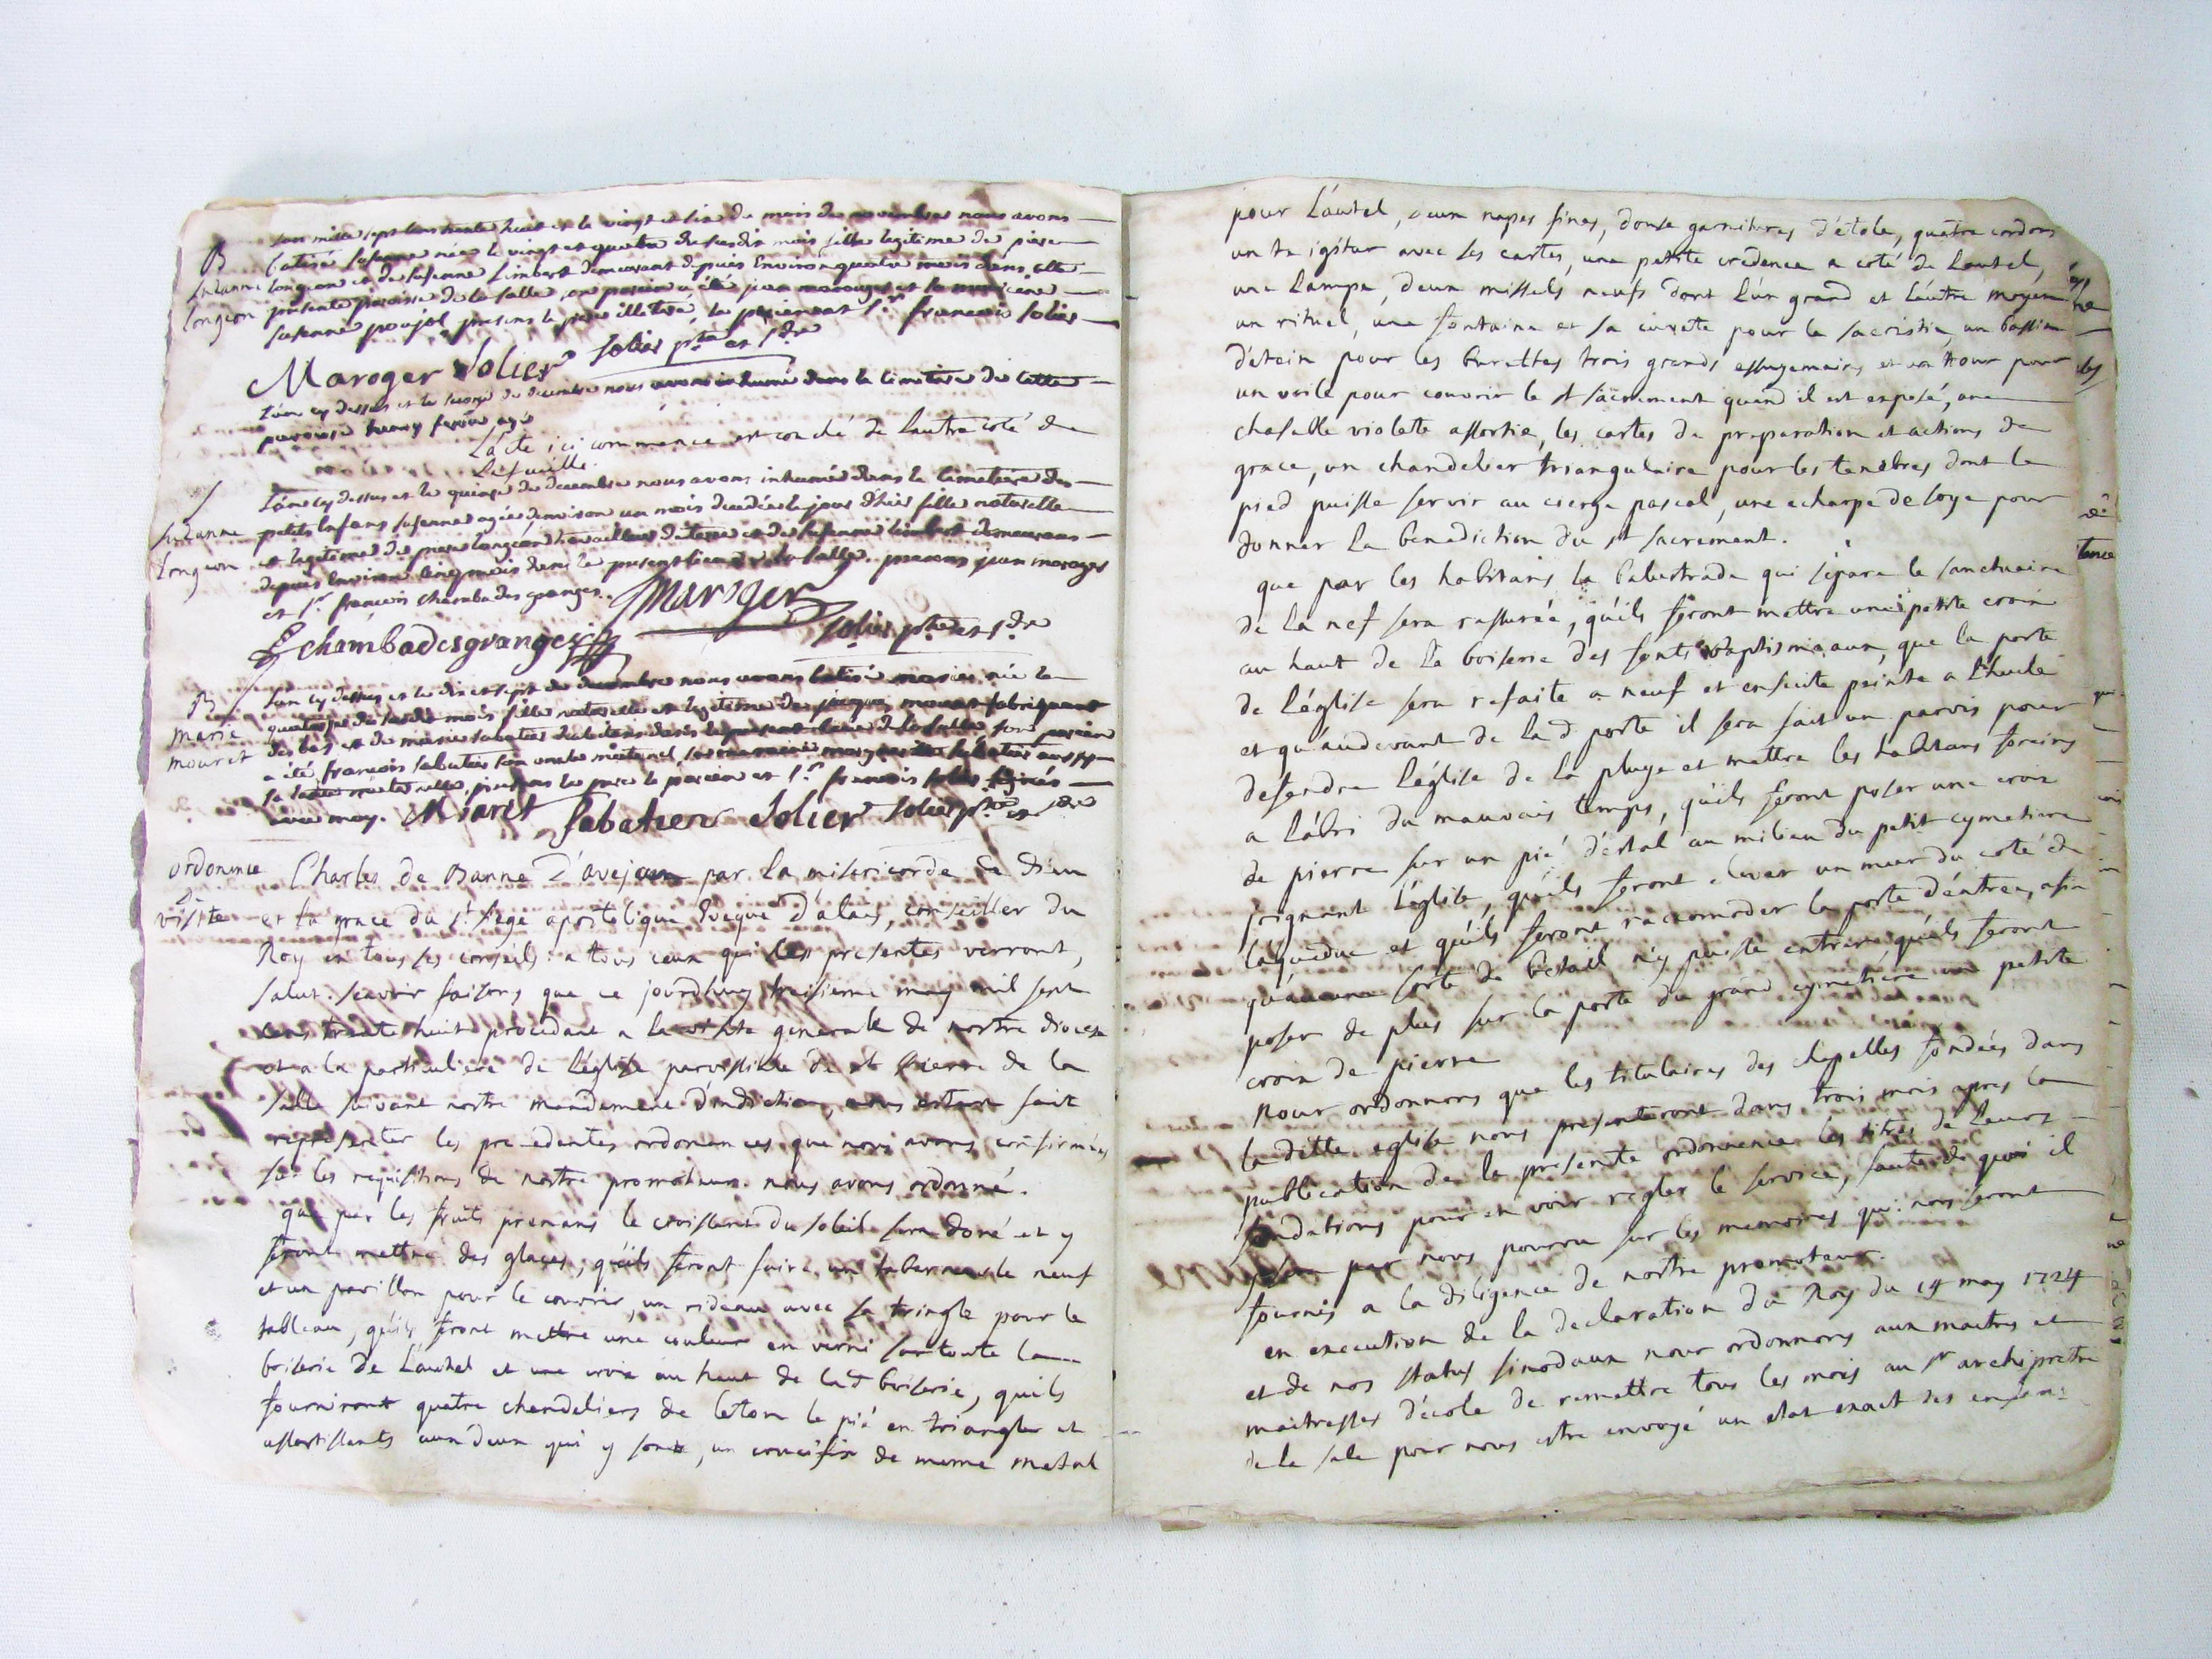 lan mille sept cens trente huit et le vingt et six du mois de novembre nous avons
B batisé susanne née le vingt et quatre du susdit mois fille legitime de piere
Suzanne longeon et de susanne limbert demeurant depuis environ quatre mois dans cette
longeon presente paroisse de la salle, son parrein a été jean maroger et la marreine
susanne poujol presens le pere illiteré, le parrein et Sr francois solier
Maroger Solier solier ptre et
L'an cy dessus et le second de decembre nous avons inhumé dans le cimetiere de cette
paroisse henry agé
L'acte ici commencé est couché de lautre coté de
la feuille.
L'an cy dessus et le quinze de decembre nous avons inhumée dans le cimetiere des
Suzanne petits enfans susanne agée denviron un mois decedée le jour d'hier fille naturelle
Longeon et legitime de piere longeon travailleur de terre et de susanne limbert demeurans
depuis environ cinq mois dans le present lieu de la salle. presens jean maroger
et Sr francois chambadesgranges.
Maroger
chambadesgranges solier ptre et
B l'an cy dessus et le dix et sept de decembre nous avons batisé marie née le
marie quatorze du susdit mois fille naturelle et legitime de jacques mouret fabriquant
mouret de bas et de marie sabatier habitans dans le present lieu de la salle son parrein
a été francois sabatier son oncle maternel sa marreine sabatier aussy
sa tante maternelle, presens le pere le parrein et Sr francois solier signés
avec moy. Mouret Sabatier Solier solier ptre et
ordonence Charles de Banne D'avejan par la misericorde de Dieu
De
visite et la grace du St siege apostolique Eveque D'alais, conseiller du
Roy en tous ses conseils a tous ceux qui ces presentes verront,
salut. scavoir faisons que ce jourdhuy treisieme may mil sept
cens trente huit procedant a la visite generale de nostre diocese
et a la particuliere de l'église paroissiale de st pierre de la
salle suivant nostre mandement d'indiction, nous estant fait
representer les precedentes ordonences que nous avons confirmées
sur les requisitions de nostre promoteur. nous avons ordonné.
que par les fruits prenans le croissant du soleil sera doré et y
feront mettre des glaces, qu'ils feront faire un tabernacle neuf
et un pavillon pour le couvrir, un rideau avec sa tringle pour le
tableau, qu'ils feront mettre une couleur en verni sur toute la
boiserie de L'autel et une croix au haut de lad boiserie, quils
fourniront quatre chandeliers de leton le pié en triangle et
assortissants aux deux qui y sont, un crucifix de meme metal
pour L'autel, deux napes fines, douse garnitures d'étole, quatre cordons
un te igitur avec ses cartes, une petite credence a coté de Lautel,
une lampe, deux missels neufs dont l'un grand et l'autre moyen
un rituel, une fontaine et sa cuvete pour la sacristie, un bassin
d'etein pour les burettes trois grands essuyemains et un tour pour
un voile pour couvrir le st sacrement quand il est exposé, une
chasuble violete assortie, les cartes de preparation et actions de
grace, un chandelier triangulaire pour les tenebres dont le
pied puisse servir au cierge pascal, une echarpe de soye pour
donner la benediction du st sacrement.
que par les habitans la balustrade qui separe le sanctuaire
de la nef sera rassurée, qu'ils feront mettre une petite croix
au haut de la boiserie des fonts baptismaux, que la porte
de l'église sera refaite a neuf et ensuite peinte a l'huile
et qu'audevant de lad porte il sera fait un parvis pour
defendre l'église de la pluye et mettre les habitans forains
a l'abri du mauvais temps, qu'ils feront poser une croix
de pierre sur un pié d'estal au milieu du petit cymetiere
joignant l'église, quils feront elever un mur du coté de
l'aqueduc et qu'ils feront raccomoder la porte d'entrée, afin
qu'aucune sorte de betail n'y puisse entrer qu'ils feront
poser de plus sur la porte du grand cymetiere une petite
croix de pierre
Nous ordonnons que les titulaires des chapelles fondées dans
la ditte eglise nous presenteront dans trois mois apres la
publication de la presente ordonnence les titres de leurs
fondations pour en voir regler le service, faute de quoi il
sera par nous pourvu sur les memoires qui nous seront
fournis a la diligence de nostre promoteur.
en execution de la declaration du Roy du 14 may 1724
et de nos statuts sinodaux nous ordonnons aux maitres et
maitresses d'école de remettre tous les mois au sr archiprêtre
de la sale pour nous estre envoyé un etat exact des enfans